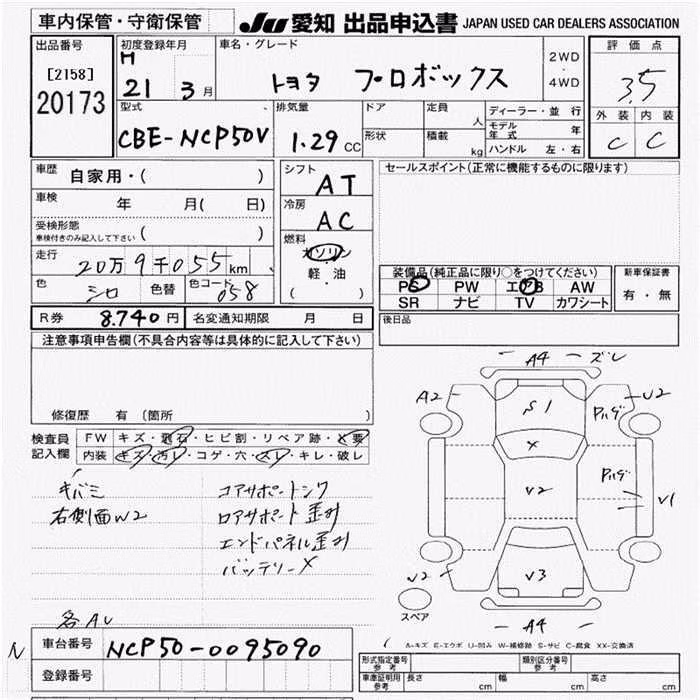 車内保管・守衛保管 JU 愛知 出品申込書 JAPAN USED CAR DEALERS ASSOCIATION
出品番号 初度登録年月 車名・グレード 2WD 評価点
[2158] H 21 3月 トヨタ プロボックス ・ 3.5
20173 4WD
型式 排気量 ドア 定員 人 ディーラー・並行 外装 内装
CBE-NCP50V 1.29 CC 形状 積載 kg モデル年式 年 C C
ハンドル 左・右
車歴 自家用・( ) シフト AT セールスポイント(正常に機能するものに限ります)
車検 年 月( 日) 冷房 AC
受検形態 ( )
車検付きのみ記入して下さい
燃料 ガソリン
走行 20万9千055km ・軽油 装備品(純正品に限り○をつけてください) 新車保証書
色 シロ 色替 色コード 058 ( ) PS PW エアB AW 有・無
SR ナビ TV カワシート
R券 8.740円 名変通知期限 月 日 後日品
注意事項申告欄(不具合内容等は具体的に記入して下さい)
A4 ズレ
A2 S1 ハゲ U2
修復歴 有(箇所 )
検査員 FW キズ・飛石・ヒビ割・リペア跡・X要 X
記入欄 内装 キズ・汚レ・コゲ・穴・スレ・キレ・破レ
キバミ コアサポートシワ ハゲ
右側面W2 ロアサポート歪み U2 V1
エンドパネル歪み
バッテリーX U2 V3
スペア
各AU A4
車台番号 NCP50-0095090 A-キズ E-エクボ U-凹み W-補修跡 S-サビ C-腐食 XX-交換済
登録番号 形式指定番号 参考 類別区分番号 参考
車庫証明用 参考 長さ cm 幅 cm 高さ cm